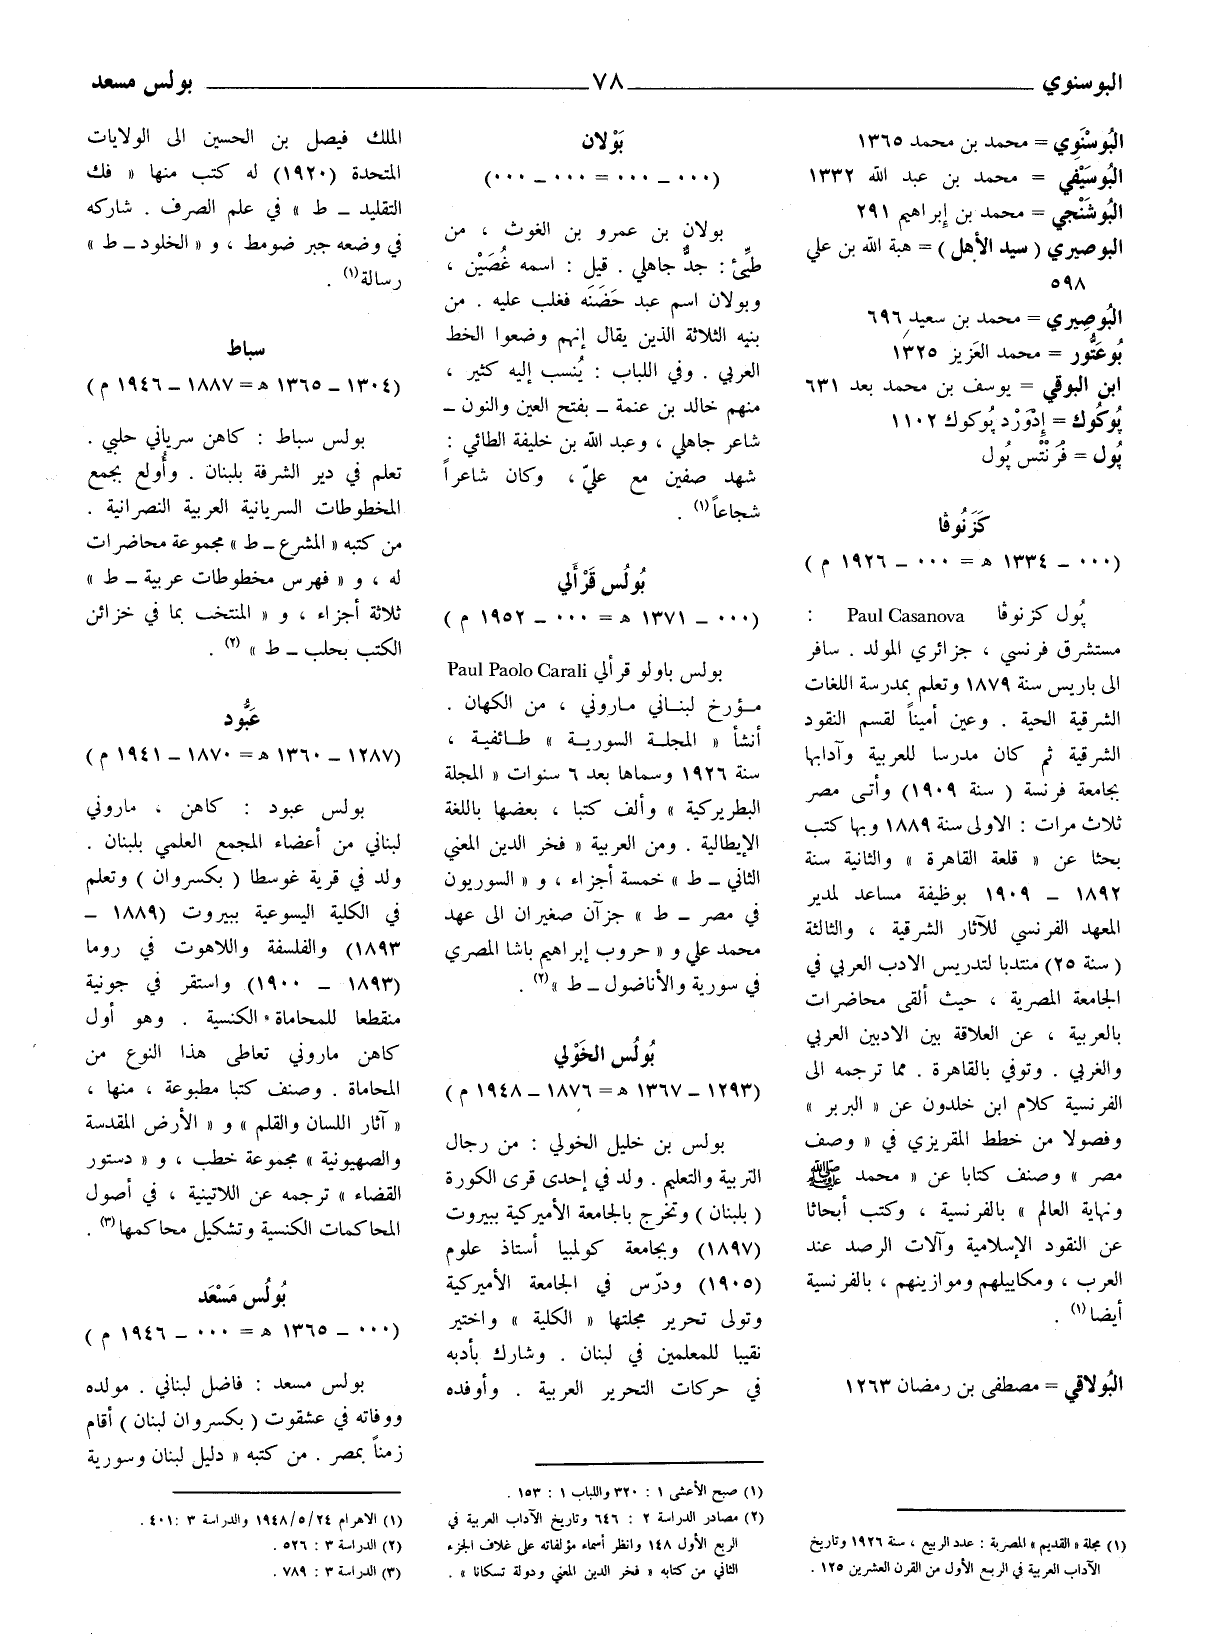 البوسنوي ٧٨ بولس مسعد
البُوسْنَوِي = محمد بن محمد ١٣٦٥
البُوسَيْفي = محمد بن عبد الله ١٣٣٢
البُوشَنْجي = محمد بن إبراهيم ٢٩١
البوصيري ( سيد الأهل ) = هبة الله بن علي
٥٩٨
البُوصِيري = محمد بن سعيد ٦٩٦
بُوعَتُّور = محمد العَزيز ١٣٢٥
ابن البوقي = يوسف بن محمد بعد ٦٣١
پُوكُوك = إِدْوَرْد پُوكوك ١١٠٢
پُول = فْرَنْتْس پُول
كَزَنُوڤا
(٠٠٠ ـ ١٣٣٤ ه = ٠٠٠ ـ ١٩٢٦ م )
پُول كزنوڤا Paul Casanova :
مستشرق فرنسي ، جزائري المولد . سافر
الى باريس سنة ١٨٧٩ وتعلم بمدرسة اللغات
الشرقية الحية . وعين أميناً لقسم النقود
الشرقية ثم كان مدرسا للعربية وآدابها
بجامعة فرنسة ( سنة ١٩٠٩) وأتى مصر
ثلاث مرات : الاولى سنة ١٨٨٩ وبها كتب
بحثا عن « قلعة القاهرة » والثانية سنة
١٨٩٢ ـ ١٩٠٩ بوظيفة مساعد لمدير
المعهد الفرنسي للآثار الشرقية ، والثالثة
( سنة ٢٥) منتدبا لتدريس الادب العربي في
الجامعة المصرية ، حيث ألقى محاضرات
بالعربية ، عن العلاقة بين الادبين العربي
والغربي . وتوفي بالقاهرة . مما ترجمه الى
الفرنسية كلام ابن خلدون عن « البربر »
وفصولا من خطط المقريزي في « وصف
مصر » وصنف كتابا عن « محمد ﷺ
ونهاية العالم » بالفرنسية ، وكتب أبحاثا
عن النقود الإسلامية وآلات الرصد عند
العرب ، ومكاييلهم وموازينهم ، بالفرنسية
أيضا(١) .
البُولاقي = مصطفى بن رمضان ١٢٦٣
(١) مجلة « القديم » المصرية : عدد الربيع ، سنة ١٩٢٦ وتاريخ
الآداب العربية في الربع الأول من القرن العشرين ١٢٥ .
بَوْلان
(٠٠٠ ـ ٠٠٠ = ٠٠٠ ـ ٠٠٠)
بولان بن عمرو بن الغوث ، من
طيِّئ : جدٌّ جاهلي . قيل : اسمه غُصَيْن ،
وبولان اسم عبد حَضَنَه فغلب عليه . من
بنيه الثلاثة الذين يقال إنهم وضعوا الخط
العربي . وفي اللباب : يُنسب إليه كثير ،
منهم خالد بن عنمة ـ بفتح العين والنون ـ
شاعر جاهلي ، وعبد الله بن خليفة الطائي :
شهد صفين مع عليّ ، وكان شاعراً
شجاعاً(١) .
بُولُس قَرْأَلي
(٠٠٠ ـ ١٣٧١ ه = ٠٠٠ ـ ١٩٥٢ م )
بولس باولو قرألي Paul Paolo Carali
مـؤرخ لبنـاني مـاروني ، من الكهان .
أنشأ « المجلـة السوريـة » طـائفيـة ،
سنة ١٩٢٦ وسماها بعد ٦ سنوات « المجلة
البطريركية » وألف كتبا ، بعضها باللغة
الإيطالية . ومن العربية « فخر الدين المعني
الثاني ـ ط » خمسة أجزاء ، و « السوريون
في مصر ـ ط » جزآن صغيران الى عهد
محمد علي و « حروب إبراهيم باشا المصري
في سورية والأناضول ـ ط »(٢) .
بُولُس الخَوْلي
(١٢٩٣ ـ ١٣٦٧ ه = ١٨٧٦ ـ ١٩٤٨ م )
بولس بن خليل الخولي : من رجال
التربية والتعليم . ولد في إحدى قرى الكورة
( بلبنان ) وتخرج بالجامعة الأميركية ببيروت
(١٨٩٧) وبجامعة كولمبيا أستاذ علوم
(١٩٠٥) ودرّس في الجامعة الأميركية
وتولى تحرير مجلتها « الكلية » واختير
نقيبا للمعلمين في لبنان . وشارك بأدبه
في حركات التحرير العربية . وأوفده
(١) صبح الأعشى ١ : ٣٢٠ واللباب ١ : ١٥٣ .
(٢) مصادر الدراسة ٢ : ٦٤٦ وتاريخ الآداب العربية في
الربع الأول ١٤٨ وانظر أسماء مؤلفاته على غلاف الجزء
الثاني من كتابه « فخر الدين المعني ودولة تسكانا » .
الملك فيصل بن الحسين الى الولايات
المتحدة (١٩٢٠) له كتب منها « فك
التقليد ـ ط » في علم الصرف . شاركه
في وضعه جبر ضومط ، و « الخلود ـ ط »
رسالة(١) .
سباط
(١٣٠٤ ـ ١٣٦٥ ه = ١٨٨٧ ـ ١٩٤٦ م )
بولس سباط : كاهن سرياني حلبي .
تعلم في دير الشرفة بلبنان . وأُولع بجمع
المخطوطات السريانية العربية النصرانية .
من كتبه « المشرع ـ ط » مجموعة محاضرات
له ، و « فهرس مخطوطات عربية ـ ط »
ثلاثة أجزاء ، و « المنتخب بما في خزائن
الكتب بحلب ـ ط » (٢) .
عَبُّود
(١٢٨٧ ـ ١٣٦٠ ه = ١٨٧٠ ـ ١٩٤١ م )
بولس عبود : كاهن ، ماروني
لبناني من أعضاء المجمع العلمي بلبنان .
ولد في قرية غوسطا ( بكسروان ) وتعلم
في الكلية اليسوعية ببيروت (١٨٨٩ ـ
١٨٩٣) والفلسفة واللاهوت في روما
(١٨٩٣ ـ ١٩٠٠) واستقر في جونية
منقطعا للمحاماة الكنسية . وهو أول
كاهن ماروني تعاطى هذا النوع من
المحاماة . وصنف كتبا مطبوعة ، منها ،
« آثار اللسان والقلم » و « الأرض المقدسة
والصهيونية » مجموعة خطب ، و « دستور
القضاء » ترجمه عن اللاتينية ، في أصول
المحاكمات الكنسية وتشكيل محاكمها(٣) .
بُولُس مَسْعَد
(٠٠٠ ـ ١٣٦٥ ه = ٠٠٠ ـ ١٩٤٦ م )
بولس مسعد : فاضل لبناني . مولده
ووفاته في عشقوت ( بكسروان لبنان ) أقام
زمناً بمصر . من كتبه « دليل لبنان وسورية
(١) الاهرام ١٩٤٨/٥/٢٤ والدراسة ٣ : ٤٠١ .
(٢) الدراسة ٣ : ٥٢٦ .
(٣) الدراسة ٣ : ٧٨٩ .